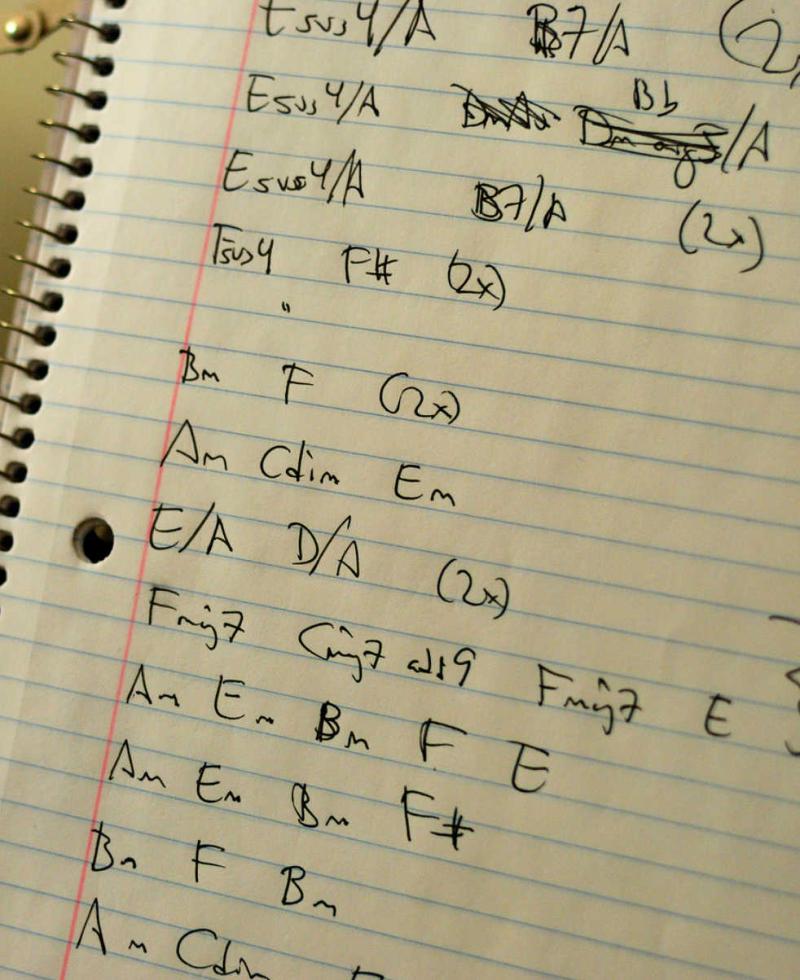 Esus4/A B7/A (2x
Esus4/A Bb/A
Esus4/A B7/A (2x)
Esus4 F# (2x)
"
Bm F (2x)
Am Cdim Em
E/A D/A (2x)
Fmaj7 Cmaj7 add9 Fmaj7 E
Am Em Bm F E
Am Em Bm F#
Bm F Bm
Am Cdim